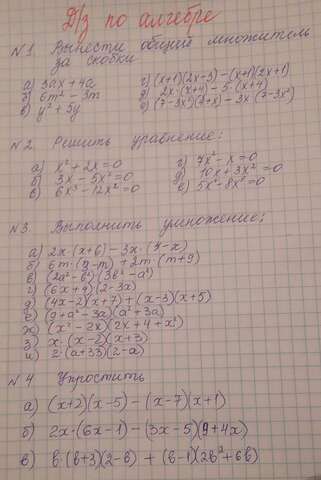 Д/з по алгебре
№1 Вынести общий множитель за скобки
а) 3ax + 4a г) (x+1)(2x-3) - (x+1)(2x+1)
б) 6m² - 3m д) 2x·(x+4) - 5·(x+4)
в) y² + 5y е) (7-3x²)(2+x) - 3x·(7-3x²)
№2 Решить уравнение:
а) x² + 2x = 0 г) 7x² - x = 0
б) 3x - 5x² = 0 д) 10x + 3x² = 0
в) 6x³ - 12x² = 0 е) 5x² - 8x³ = 0
№3 Выполнить умножение:
а) 2x·(x+6) - 3x·(4-x)
б) 6m·(9-m) + 2m·(m+9)
в) (2a²-b²)(3b²-a²)
г) (6x+4)(2-3x)
д) (4x-2)(x+7) + (x-3)(x+5)
е) (9+a²-3a)(a²+3a)
ж) (x²-2x)(2x+4+x²)
з) x·(x-2)(x+3)
и) 2·(a+33)(2-a)
№4 Упростить
а) (x+2)(x-5) - (x-7)(x+1)
б) 2x·(6x-1) - (3x-5)(9+4x)
в) b·(b+3)(2-b) + (b-1)(2b²+6b)